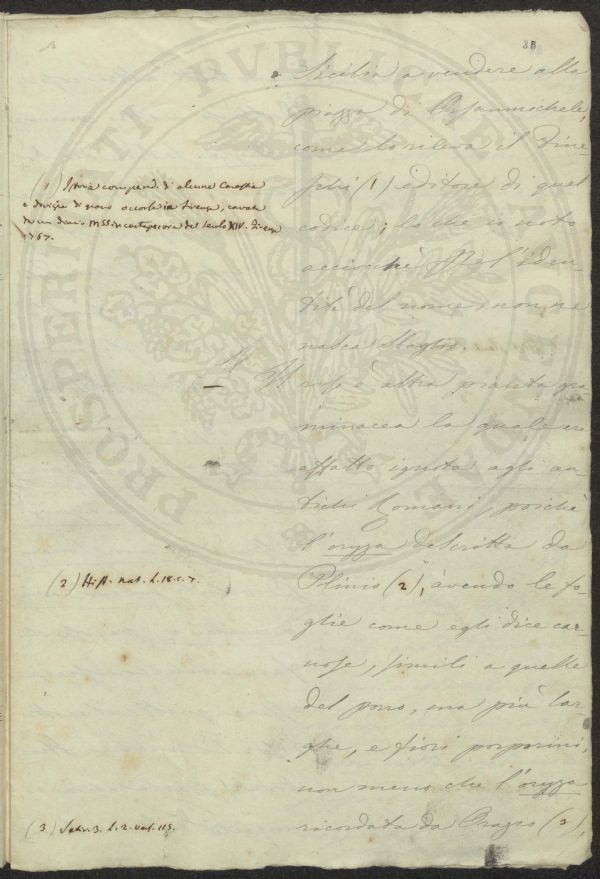 38
Sicilia a vendere alla
piazza di Orsanmichele,
come lo rileva il Fine-
schi (1) editore di quel
codice; lo che io noto
acciochè nell'iden-
tità del nome, non ne
nasca sbaglio.
Il riso è altra pianta gra
minacea la quale era
affatto ignota agli an-
tichi Romani, poichè
l'oryza descritta da
Plinio (2), avendo le fo-
glie come egli dice car-
nose, simili a quelle
del porro, ma più lar
ghe, e fiori porporini,
non meno che l'oryza
ricordata da Orazio (3),
(1) Istoria compend. di alcune Carestie
e dovizie di grano occorse in Firenze, cavata
da un diario MSS. in cartapecora del secolo XIV. Firenze
1767.
(2) Hist. nat. L. 18. c. 7.
(3) Satir. 3. L. 2. vers. 115.
PROSPERITATI PVBLICAE AVGENDAE